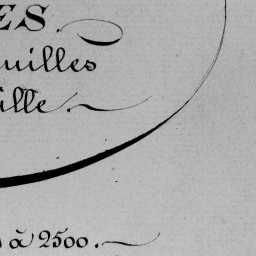 ES.
uilles
ille.
à 2500.